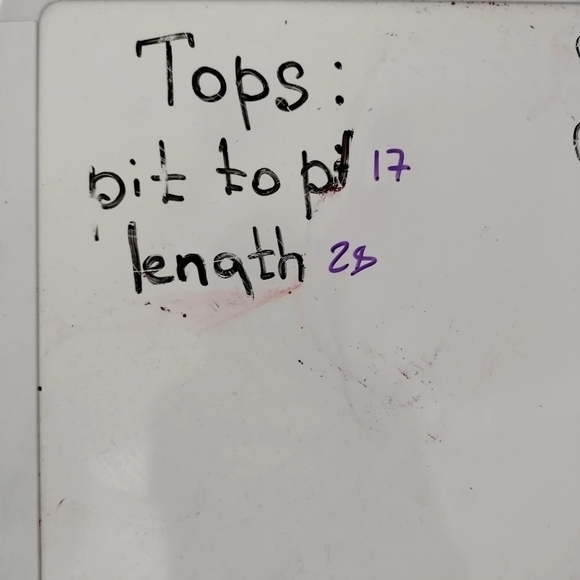 Tops:
pit to pit 17
length 28